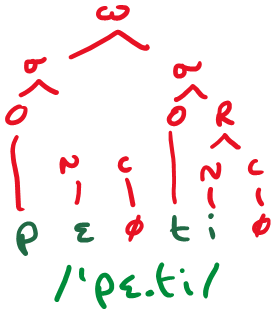 ω
σ σ
O O R
N C N C
p ɛ ∅ t i ∅
/ˈpɛ.ti/